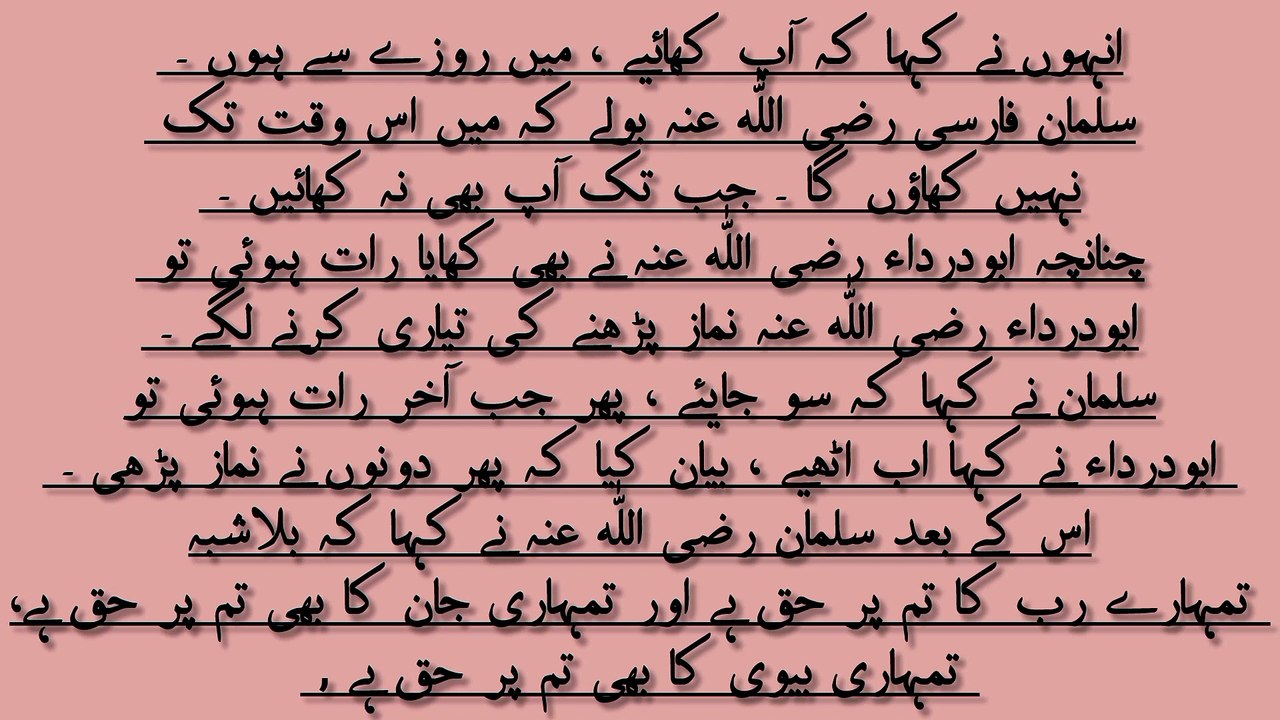 انہوں نے کہا کہ آپ کھائیے ، میں روزے سے ہوں ۔
سلمان فارسی رضی اللّٰہ عنہ بولے کہ میں اس وقت تک
نہیں کھاؤں گا ۔ جب تک آپ بھی نہ کھائیں ۔
چنانچہ ابودرداء رضی اللّٰہ عنہ نے بھی کھایا رات ہوئی تو
ابودرداء رضی اللّٰہ عنہ نماز پڑھنے کی تیاری کرنے لگے ۔
سلمان نے کہا کہ سو جایئے ، پھر جب آخر رات ہوئی تو
ابودرداء نے کہا اب اٹھیے ، بیان کیا کہ پھر دونوں نے نماز پڑھی ۔
اس کے بعد سلمان رضی اللّٰہ عنہ نے کہا کہ بلاشبہ
تمہارے رب کا تم پر حق ہے اور تمہاری جان کا بھی تم پر حق ہے،
تمہاری بیوی کا بھی تم پر حق ہے ,